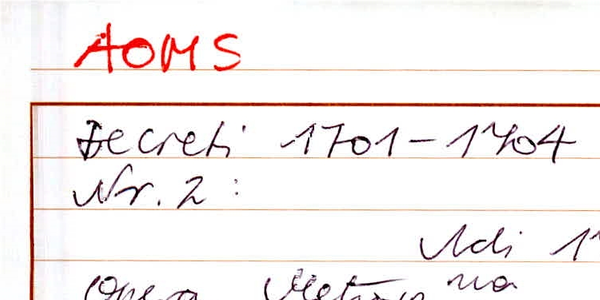 AOMS
Decreti 1701-1704
Nr. 2:
Adi 1
Opera